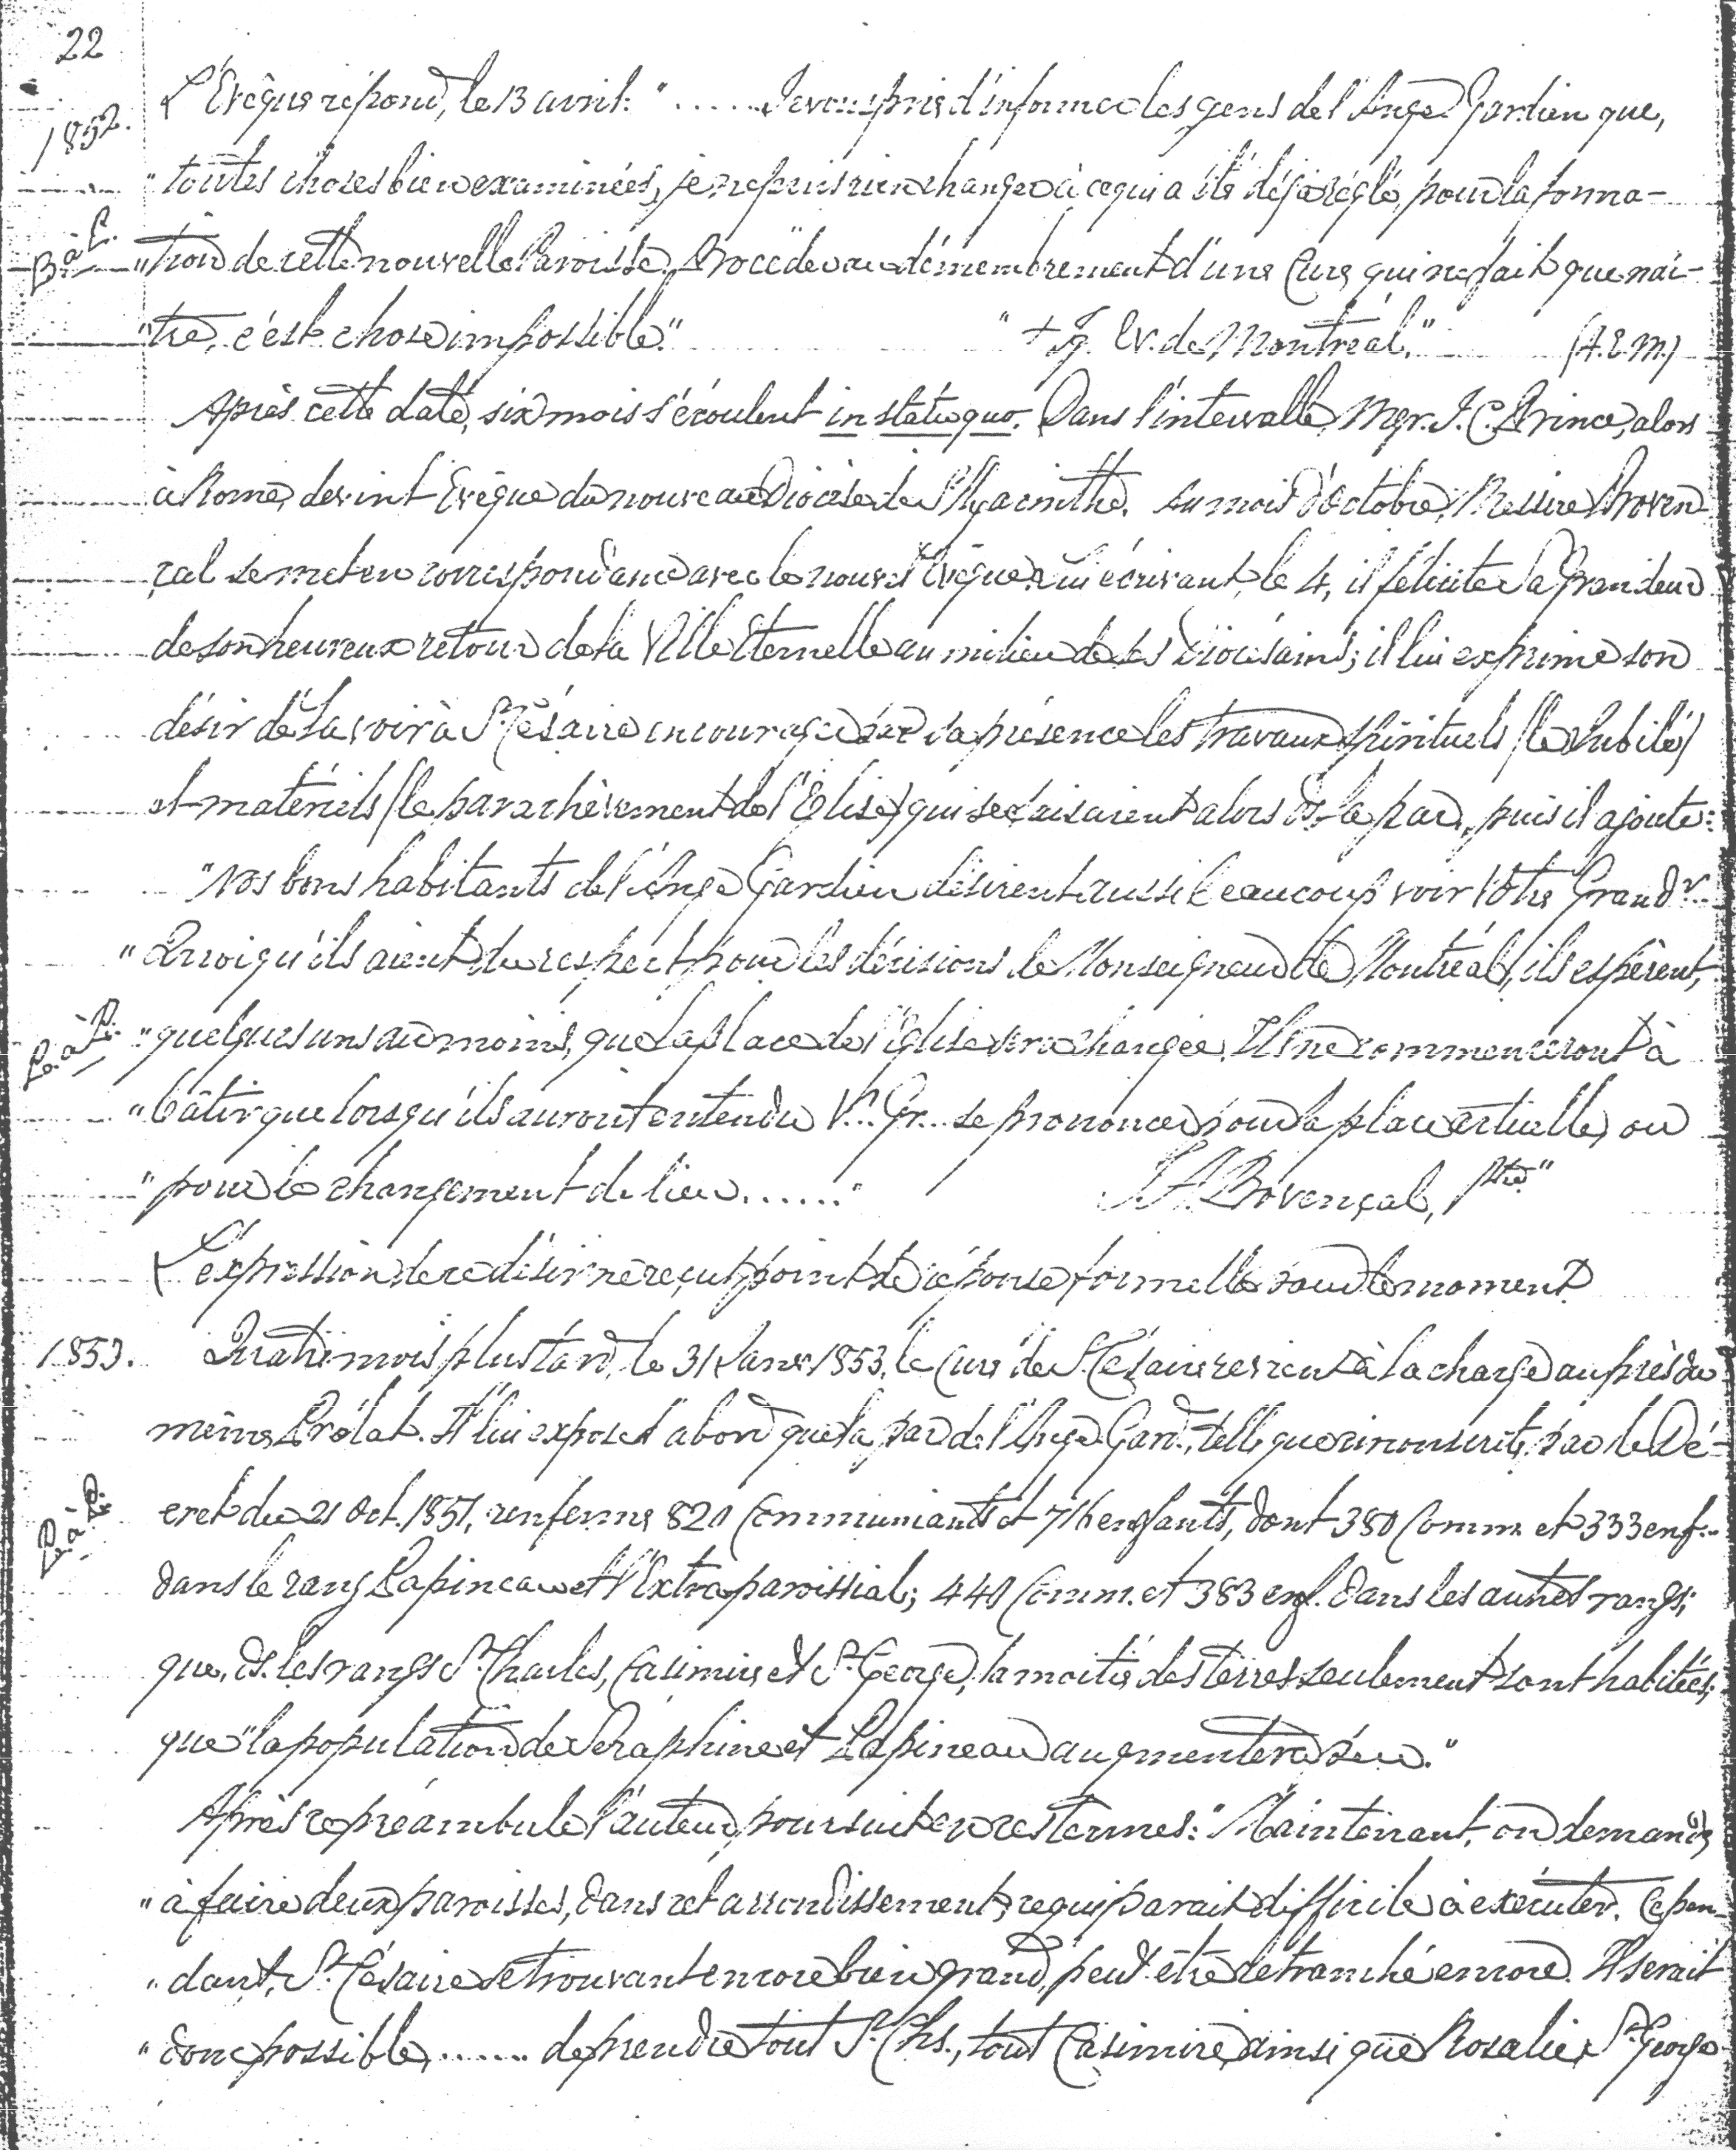 22
1852.
L'Evêque répond, le 13 avril: "...... Je vous prie d'informer les gens de l'Ange Gardien que,
"toutes choses bien examinées, je ne puis rien changer à ce qui a été déjà réglé, pour la forma-
B. à P.
"tion de cette nouvelle Paroisse. Procéder au démembrement d'une Cure qui ne fait que naî-
"tre, c'est chose impossible." "+ Ig. Ev. de Montréal." (A.E.M.)
Après cette date, six mois s'écoulent in statu quo. Dans l'intervalle, Mgr. J.C. Prince, alors
à Rome, devint Evêque du nouveau Diocèse de St Hyacinthe. Au mois d'Octobre, Messire Proven
çal se met en correspondance avec le nouvel Evêque. Lui écrivant, le 4, il félicite Sa Grandeur
de son heureux retour de la Ville Eternelle au milieu de ses Diocésains; il lui exprime son
désir de la voir à St Césaire encourager par sa présence les travaux spirituels (le Jubilé)
et matériels (le parachèvement de l'Eglise) qui se faisaient alors ds. la par., puis il ajoute:
"Vos bons habitants de l'Ange Gardien désirent aussi beaucoup voir Votre Grandr.
"Quoiqu'ils aient du respect pour les décisions de Monseigneur de Montréal, ils espèrent,
P. à P.
"quelques uns au moins, que la place de l'Eglise sera changée. Ils ne commenceront à
"bâtir que lorsqu'ils auront entendu V... Gr... se prononcer pour la place actuelle, ou
"pour le changement de lieu......" J.A. Provençal, Ptre"
L'expression de ce désir ne reçut point de réponse formelle pour le moment.
1853.
Quatre mois plus tard, le 31 Janv. 1853, le Curé de St. Césaire revient à la charge auprès du
même Prélat. Il lui expose d'abord que la par. de l'Ange Gard., telle que circonscrite par le Dé-
P. à P.
cret du 21 Oct. 1851, renferme 820 Communiants et 716 enfants, dont 380 Comm. et 333 enf.
dans le rang Papineau et l'Extra paroissial; 440 Comm. et 383 enf. dans les autres rangs;
que, ds. les rangs St. Charles, Casimire et St. George, la moitié des terres seulement sont habitées;
que "la population de Séraphine et Papineau augmentera peu."
Après ce préambule l'auteur poursuit en ces termes: "Maintenant, on demande
"à faire deux paroisses, dans cet arrondissement, ce qui parait difficile à exécuter. Cepen-
"dant, St. Césaire se trouvant encore bien grand, peut être retranché encore. Il serait
"donc possible....... de prendre tout St. Chs., tout Casimire, ainsi que Rosalie, St. George